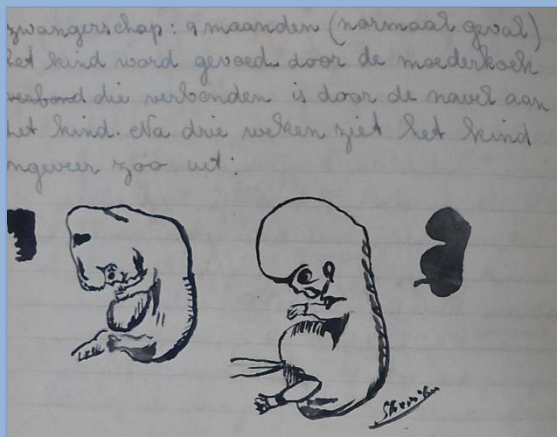 zwangerschap: 9 maanden (normaal geval)
het kind word gevoed door de moederkoek
die verbonden is door de navel aan
het kind. Na drie weken ziet het kind
ngeveer zoo uit: